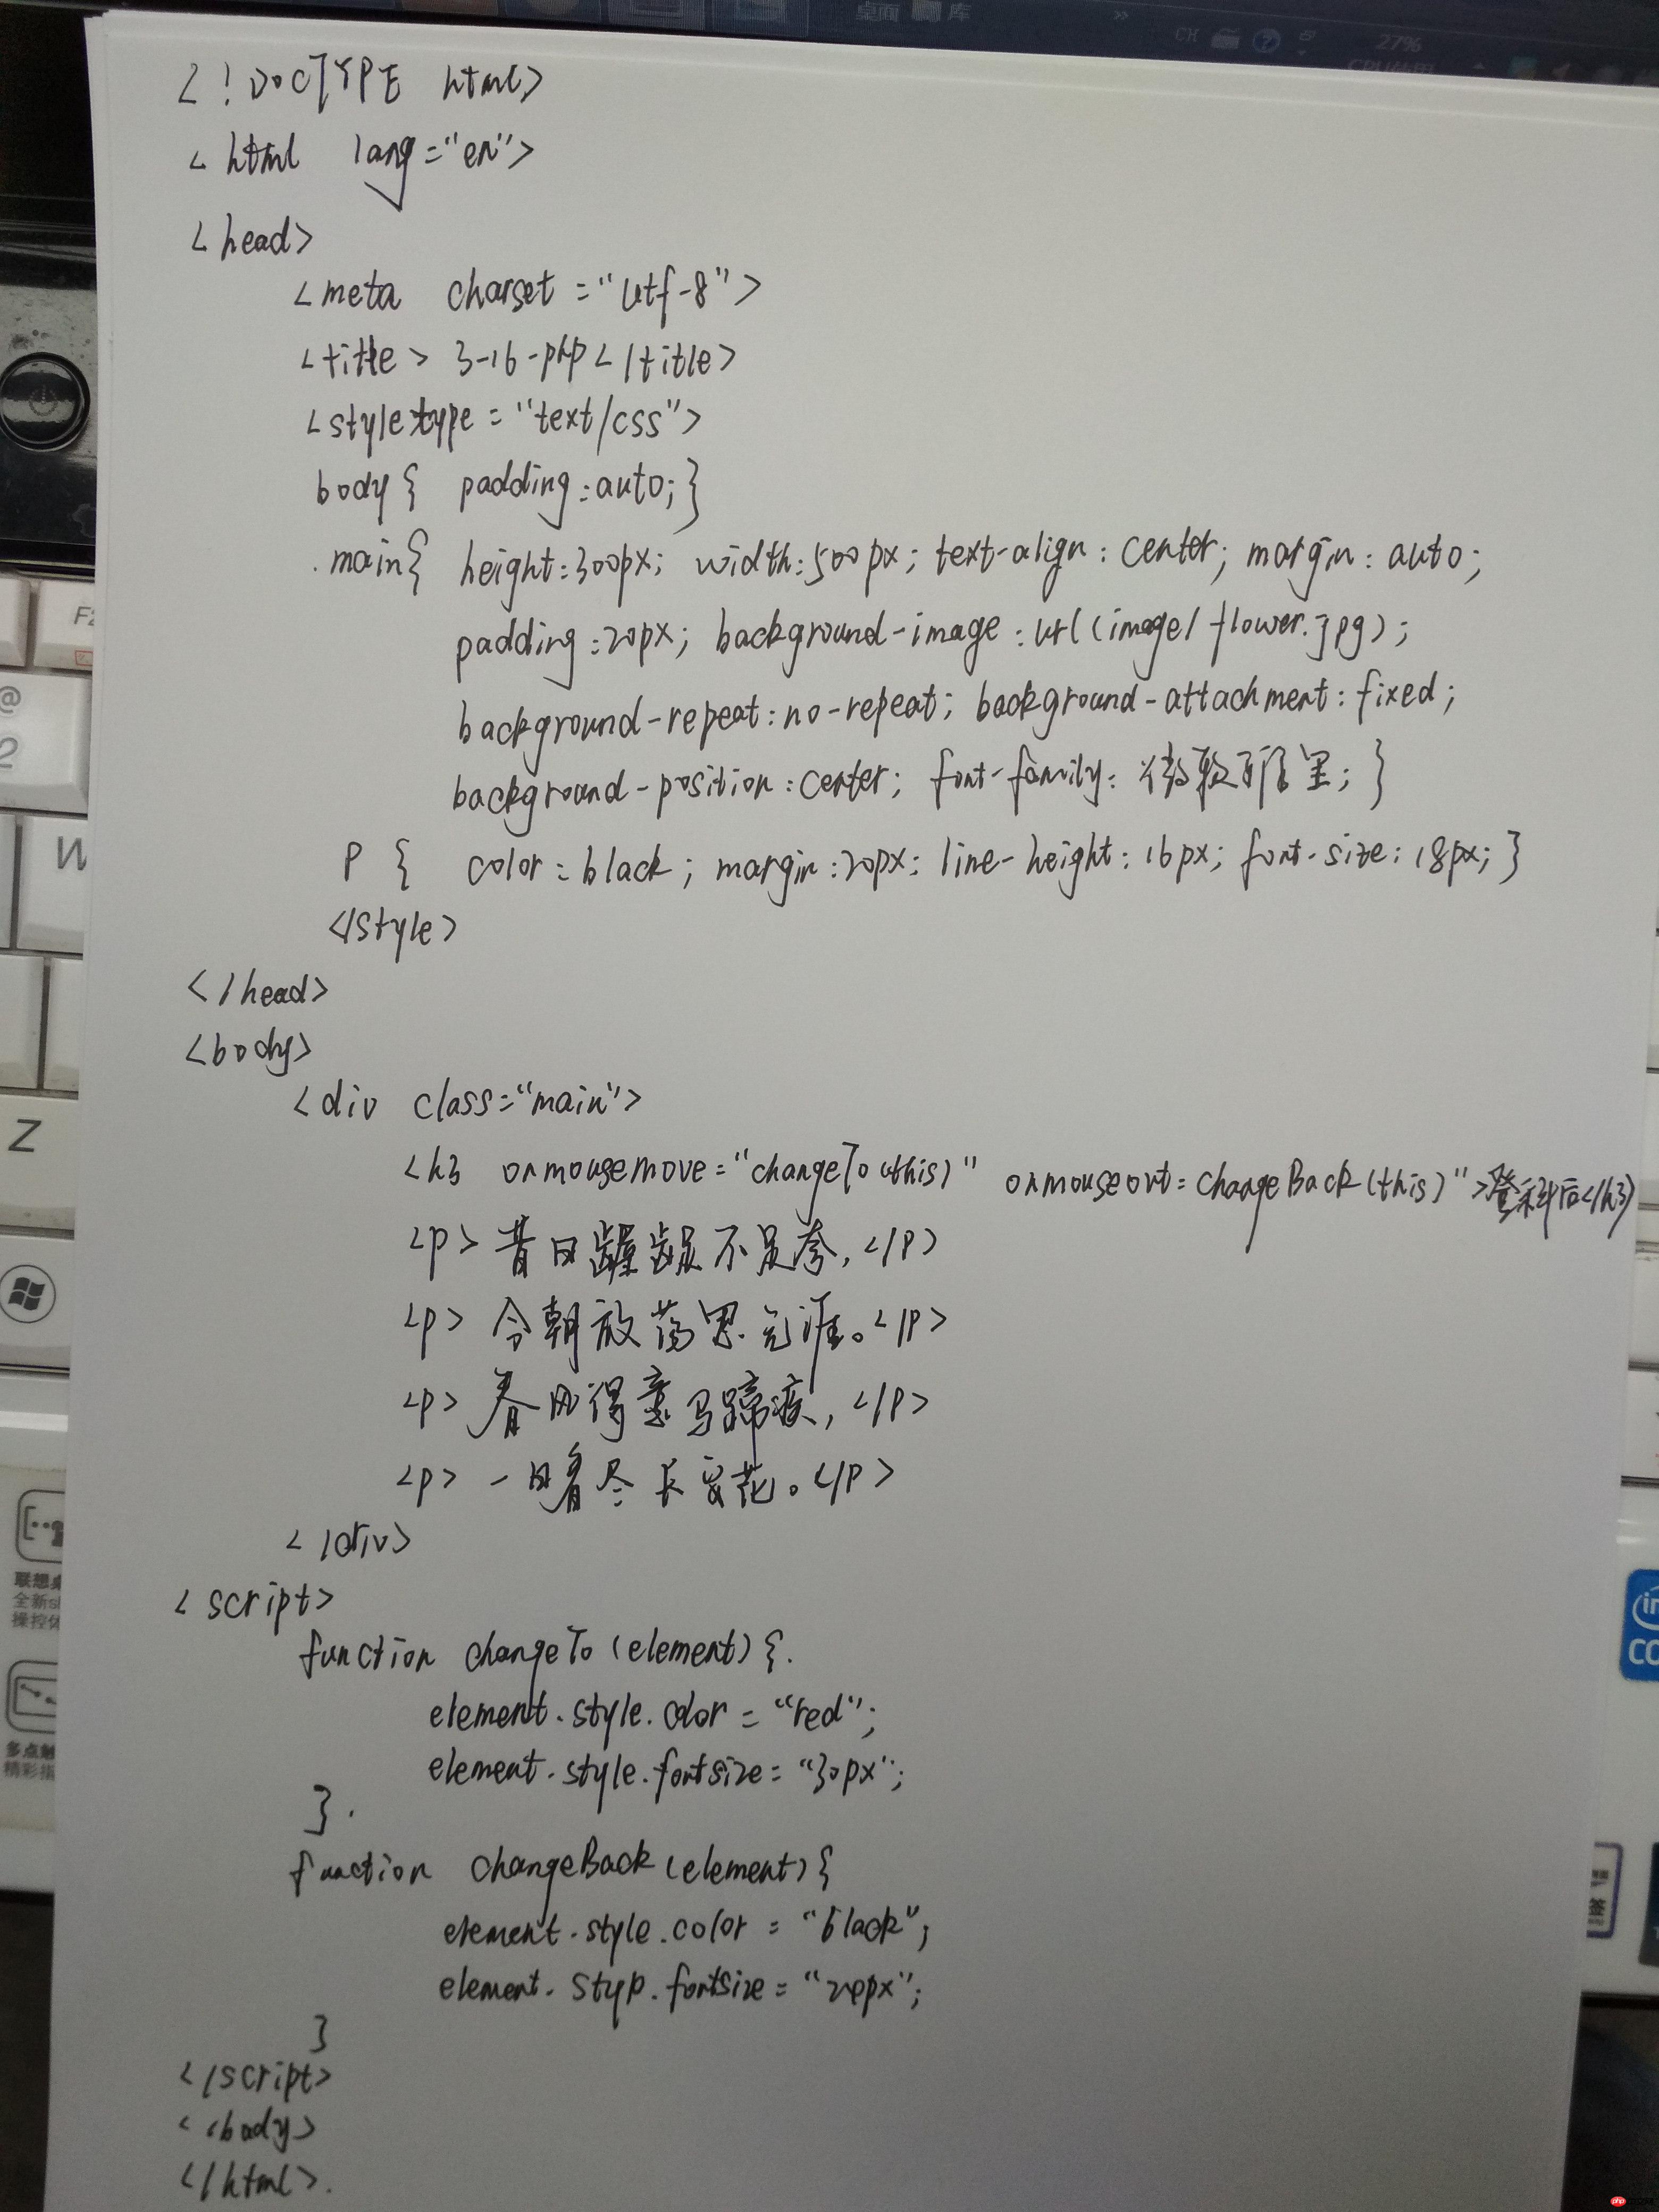 桌面 库 »
CH 27%
<!DOCTYPE html>
<html lang="en">
<head>
<meta charset="utf-8">
<title> 3-16-php</title>
<style type="text/css">
body{ padding:auto;}
.main{ height:300px; width:500px; text-align:center; margin:auto;
padding:20px; background-image:url(image/flower.jpg);
background-repeat:no-repeat; background-attachment:fixed;
background-position:center; font-family:微软雅黑; }
P { color:black; margin:20px; line-height:16px; font-size:18px; }
</style>
</head>
<body>
<div class="main">
<h3 onmousemove="changeTo(this)" onmouseout=changeBack(this)">登科后</h3>
<p>昔日龌龊不足夸,</p>
<p>今朝放荡思无涯。</p>
<p>春风得意马蹄疾,</p>
<p>一日看尽长安花。</p>
</div>
<script>
function changeTo(element){.
element.style.color = "red";
element.style.fontsize = "30px";
}.
function changeBack(element){
element.style.color = "black";
element.styp.fontsize = "20px";
}
</script>
</body>
</html>.
F2
@
2
W
Z
联想桌
全新
操控体
多点触
精彩指
in
CO
签
php